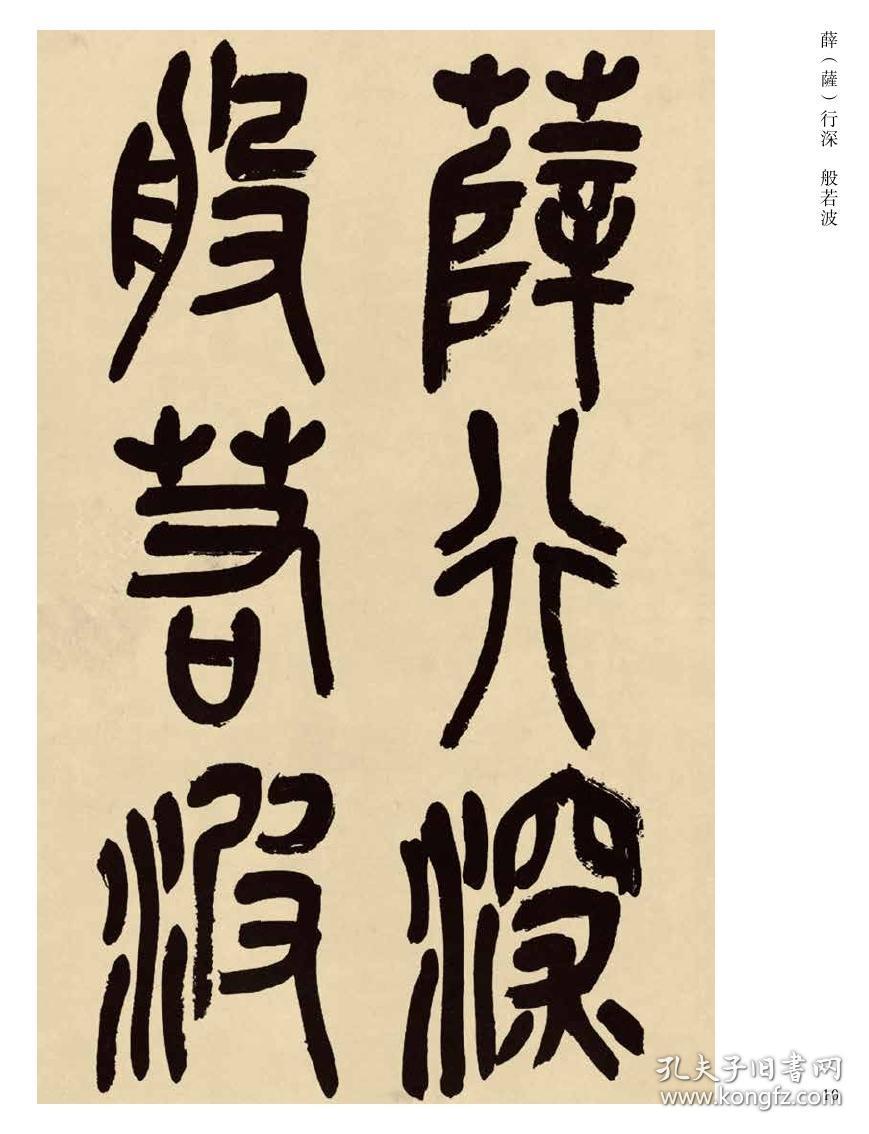 薛行深
般若波
薛（薩）行深　般若波
孔夫子旧书网
www.kongfz.com
10